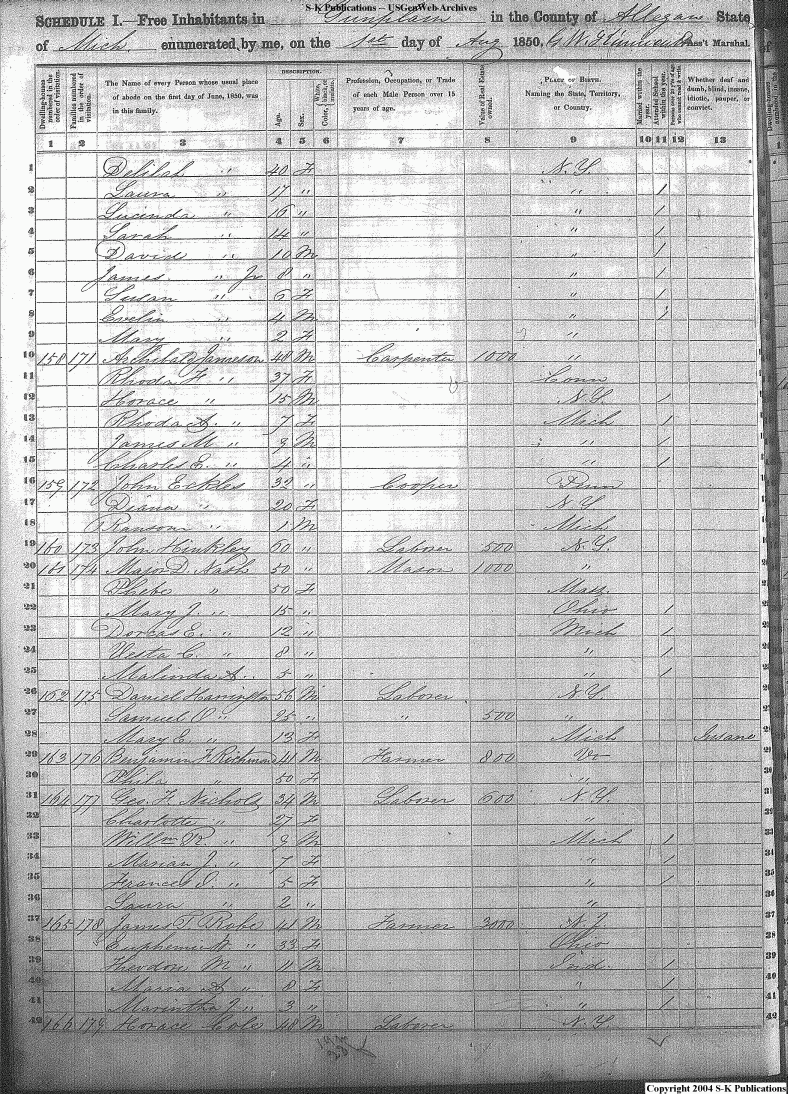 S-K Publications – USGenWeb Archives
SCHEDULE I.—Free Inhabitants in Gunplain in the County of Allegan State
of Mich. enumerated by me, on the 1st day of Aug 1850, Ass't Marshal.
Dwelling-houses numbered in the order of visitation.
Families numbered in the order of visitation.
The Name of every Person whose usual place of abode on the first day of June, 1850, was in this family.
DESCRIPTION.
Age.
Sex.
Color, White, black, or mulatto.
Profession, Occupation, or Trade of each Male Person over 15 years of age.
Value of Real Estate owned.
PLACE OF BIRTH. Naming the State, Territory, or Country.
Married within the year.
Attended School within the year.
Persons over 20 y'rs of age who cannot read & write.
Whether deaf and dumb, blind, insane, idiotic, pauper, or convict.
1 2 3 4 5 6 7 8 9 10 11 12 13
1 Delilah " 40 F N.Y.
2 Laura " 17 " " /
3 Lucinda " 16 " " /
4 Sarah " 14 " " /
5 David " 10 M " /
6 James " Jr 8 " " /
7 Susan " 6 F " /
8 Evelin " 4 M " /
9 Mary " 2 F "
10 158 171 Archibald Jameson 48 M Carpenter 1000 "
11 Rhoda F. " 37 F Conn
12 Horace " 15 M N.Y. /
13 Rhoda A. " 7 F Mich /
14 James M. " 9 M " /
15 Charles E. " 4 " " /
16 159 172 John Eckles 32 " Cooper Penn
17 Diana " 20 F N.Y.
18 Ransom " 1 M Mich
19 160 173 John Hinkley 60 " Laborer 500 N.Y.
20 161 174 Mason D. Nash 50 " Mason 1000 "
21 Phebe " 50 F Mass.
22 Mary J. " 15 " Ohio /
23 Dorcas E. " 12 " Mich /
24 Vesta C. " 8 " " /
25 Malinda A. " 5 " " /
26 162 175 Daniel Harrington 56 M Laborer N.Y.
27 Samuel O. " 25 " " 500 "
28 Mary E. " 13 F Mich Insane
29 163 176 Benjamin F. Richmond 41 M Farmer 800 Vt
30 Phila " 50 F "
31 164 177 Geo. F. Nichols 34 M Laborer 600 N.Y.
32 Charlotte " 27 F "
33 Willm R. " 9 M Mich /
34 Marian J. " 7 F " /
35 Frances D. " 5 F " /
36 Laura " 2 " "
37 165 178 James T. Robe 41 M Farmer 3000 N.J.
38 " 33 F Ohio
39 Theodore M " 11 M Ind. /
40 Maria A " 8 F " /
41 Marintha J. " 3 " " /
42 166 179 Horace Cole 48 M Laborer N.Y.
Copyright 2004 S-K Publications